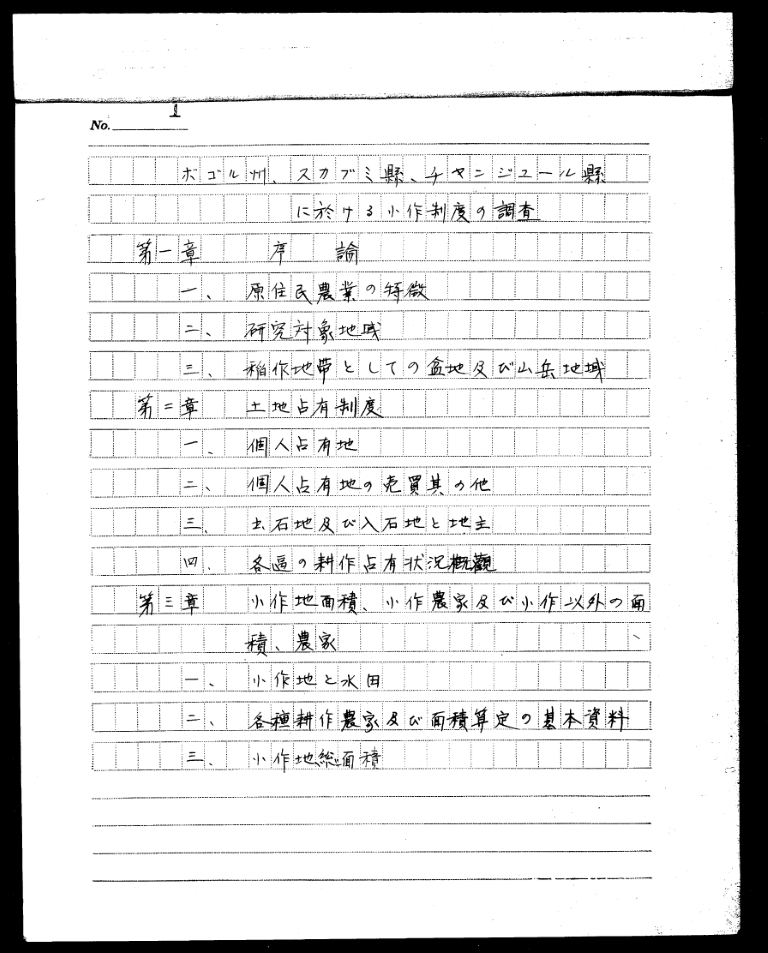 No. 1
ボゴル州、スカブミ縣、チヤンジュール縣
に於ける小作制度の調査
第一章 序論
一、 原住民農業の特徴
二、 研究対象地域
三、 稲作地帯としての盆地及び山岳地域
第二章 土地占有制度
一、 個人占有地
二、 個人占有地の売買其の他
三、 出石地及び入石地と地主
四、 各區の耕作占有状況概觀
第三章 小作地面積、小作農家及び小作以外の面
積、農家
一、 小作地と水田
二、 各種耕作農家及び面積算定の基本資料
三、 小作地総面積